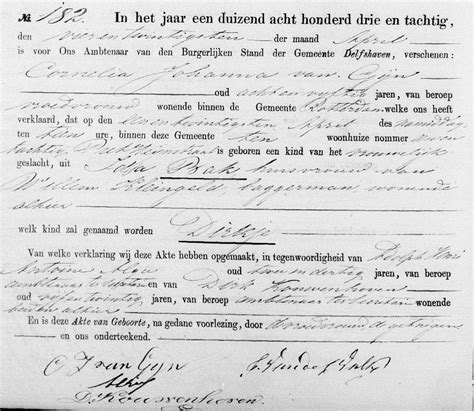 № 182. In het jaar een duizend acht honderd drie en tachtig,
den vierentwintigsten der maand April
is voor Ons Ambtenaar van den Burgerlijken Stand der Gemeente Delfshaven, verschenen:
Cornelia Johanna van Gijn
oud achtenvijftig jaren, van beroep
vroedvrouw wonende binnen de Gemeente Rotterdam welke ons heeft
verklaard, dat op den eenentwintigsten April des namiddags
ten ure, binnen deze Gemeente ten woonhuize nommer
tachtig is geboren een kind van het vrouwelijk
geslacht, uit Bak huisvrouw van
Willem Kleingeld baggerman wonende
alhier
welk kind zal genaamd worden Dirkje
Van welke verklaring wij deze Akte hebben opgemaakt, in tegenwoordigheid van Adolph
Antoine oud jaren, van beroep
ambtenaar ter secretarie en van Dirk Kouwenhoven
oud vijfentwintig jaren, van beroep ambtenaar ter secretarie wonende
beiden alhier
En is deze Akte van Geboorte, na gedane voorlezing, door
en ons onderteekend.
C J van Gijn
D. Kouwenhoven